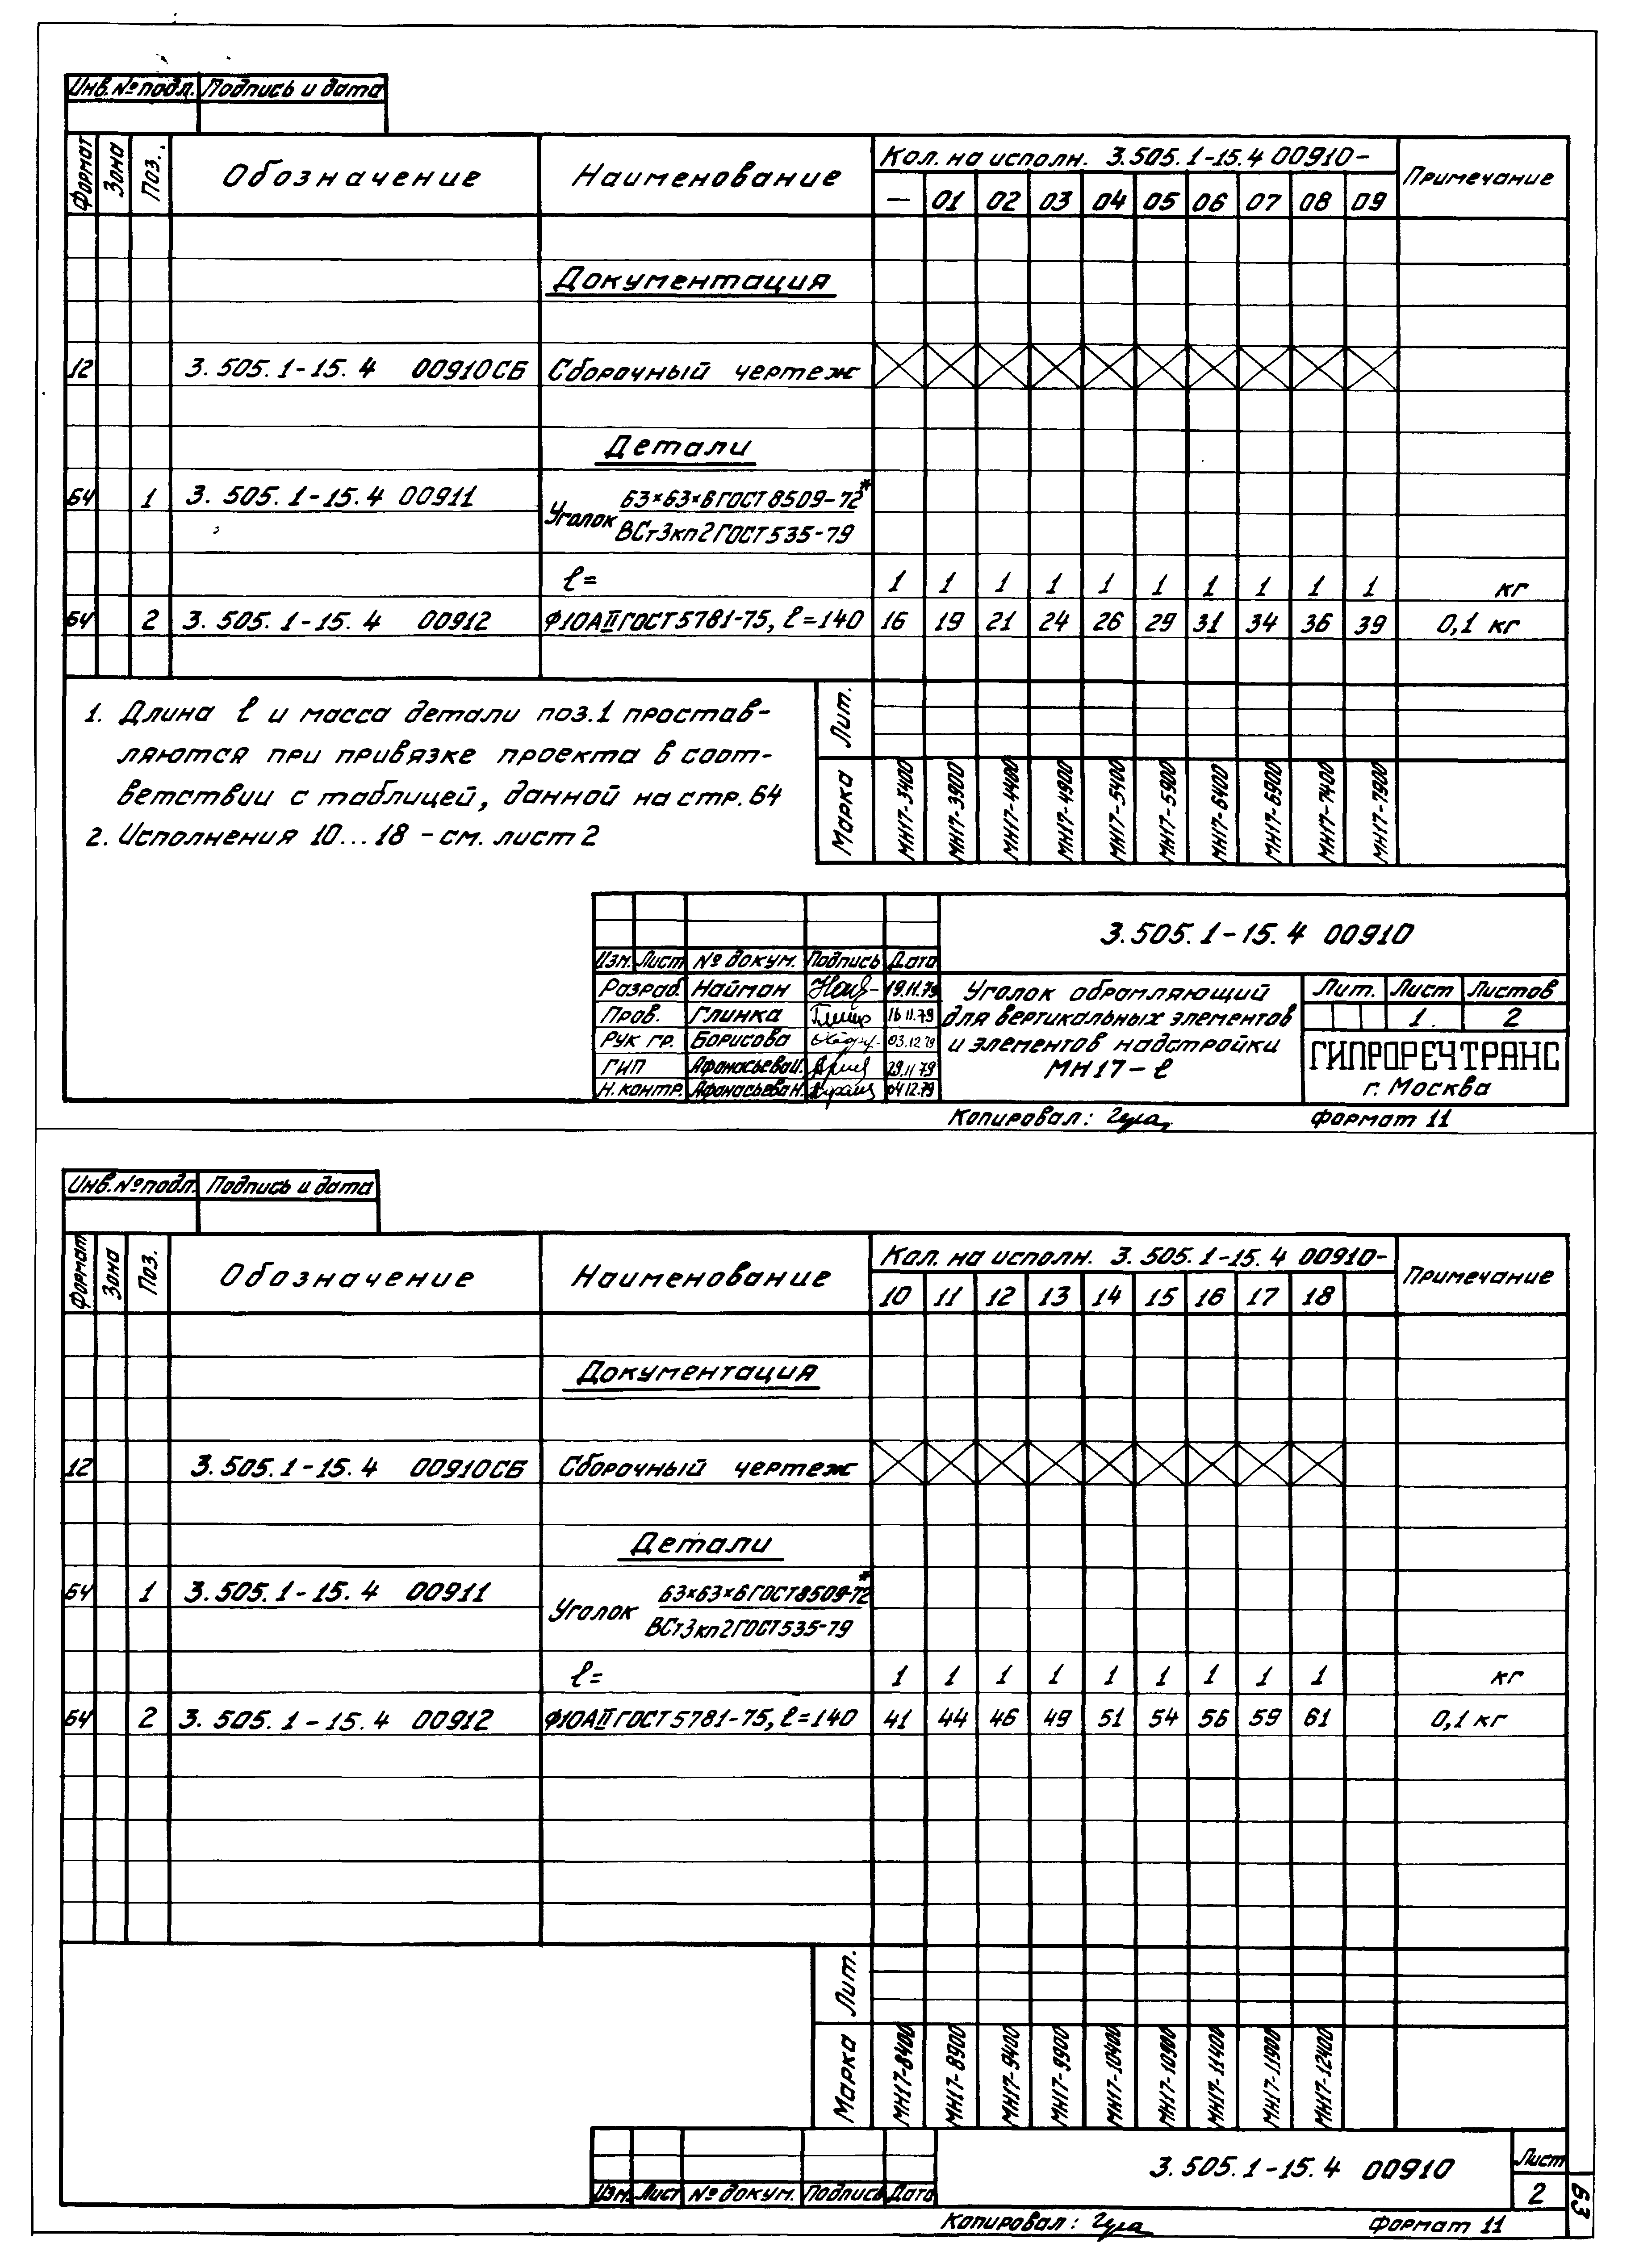 Инв. № подл. Подпись и дата
Формат Зона Поз. Обозначение Наименование Кол. на исполн. 3.505.1-15.4 00910- Примечание
— 01 02 03 04 05 06 07 08 09
Документация
12 3.505.1-15.4 00910СБ Сборочный чертеж
Детали
БЧ 1 3.505.1-15.4 00911 Уголок 63×63×6 ГОСТ 8509-72*
ВСт3кп2 ГОСТ 535-79
ℓ= 1 1 1 1 1 1 1 1 1 1 кг
БЧ 2 3.505.1-15.4 00912 Ф10АII ГОСТ 5781-75, ℓ=140 16 19 21 24 26 29 31 34 36 39 0,1 кг
1. Длина ℓ и масса детали поз.1 простав-
ляются при привязке проекта в соот-
ветствии с таблицей, данной на стр. 64
2. Исполнения 10...18 - см. лист 2
Лит.
Марка МН17-3400 МН17-3900 МН17-4400 МН17-4900 МН17-5400 МН17-5900 МН17-6400 МН17-6900 МН17-7400 МН17-7900
3.505.1-15.4 00910
Изм. Лист № докум. Подпись Дата
Разраб. Найман 19.11.79
Пров. Глинка 16.11.79
Рук гр. Борисова 03.12.79
ГИП Афанасьева 29.11.79
Н.контр. Афанасьева Н. 04.12.79
Уголок обрамляющий
для вертикальных элементов
и элементов надстройки
МН17-ℓ
Лит. Лист Листов
1 2
ГИПРОРЕЧТРАНС
г. Москва
Копировал: Формат 11
Инв. № подл. Подпись и дата
Формат Зона Поз. Обозначение Наименование Кол. на исполн. 3.505.1-15.4 00910- Примечание
10 11 12 13 14 15 16 17 18
Документация
12 3.505.1-15.4 00910СБ Сборочный чертеж
Детали
БЧ 1 3.505.1-15.4 00911 Уголок 63×63×6 ГОСТ 8509-72*
ВСт3кп2 ГОСТ 535-79
ℓ= 1 1 1 1 1 1 1 1 1 кг
БЧ 2 3.505.1-15.4 00912 Ф10АII ГОСТ 5781-75, ℓ=140 41 44 46 49 51 54 56 59 61 0,1 кг
Лит.
Марка МН17-8400 МН17-8900 МН17-9400 МН17-9900 МН17-10400 МН17-10900 МН17-11400 МН17-11900 МН17-12400
3.505.1-15.4 00910
Лист
2
Изм. Лист № докум. Подпись Дата
63
Копировал: Формат 11